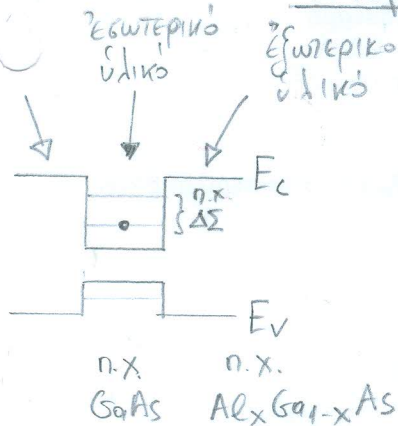 ἐσωτερικό
ὑλικό
ἐξωτερικό
ὑλικό
E_c
π.χ.
ΔΣ
E_v
π.χ.
GaAs
π.χ.
Al_xGa_{1-x}As